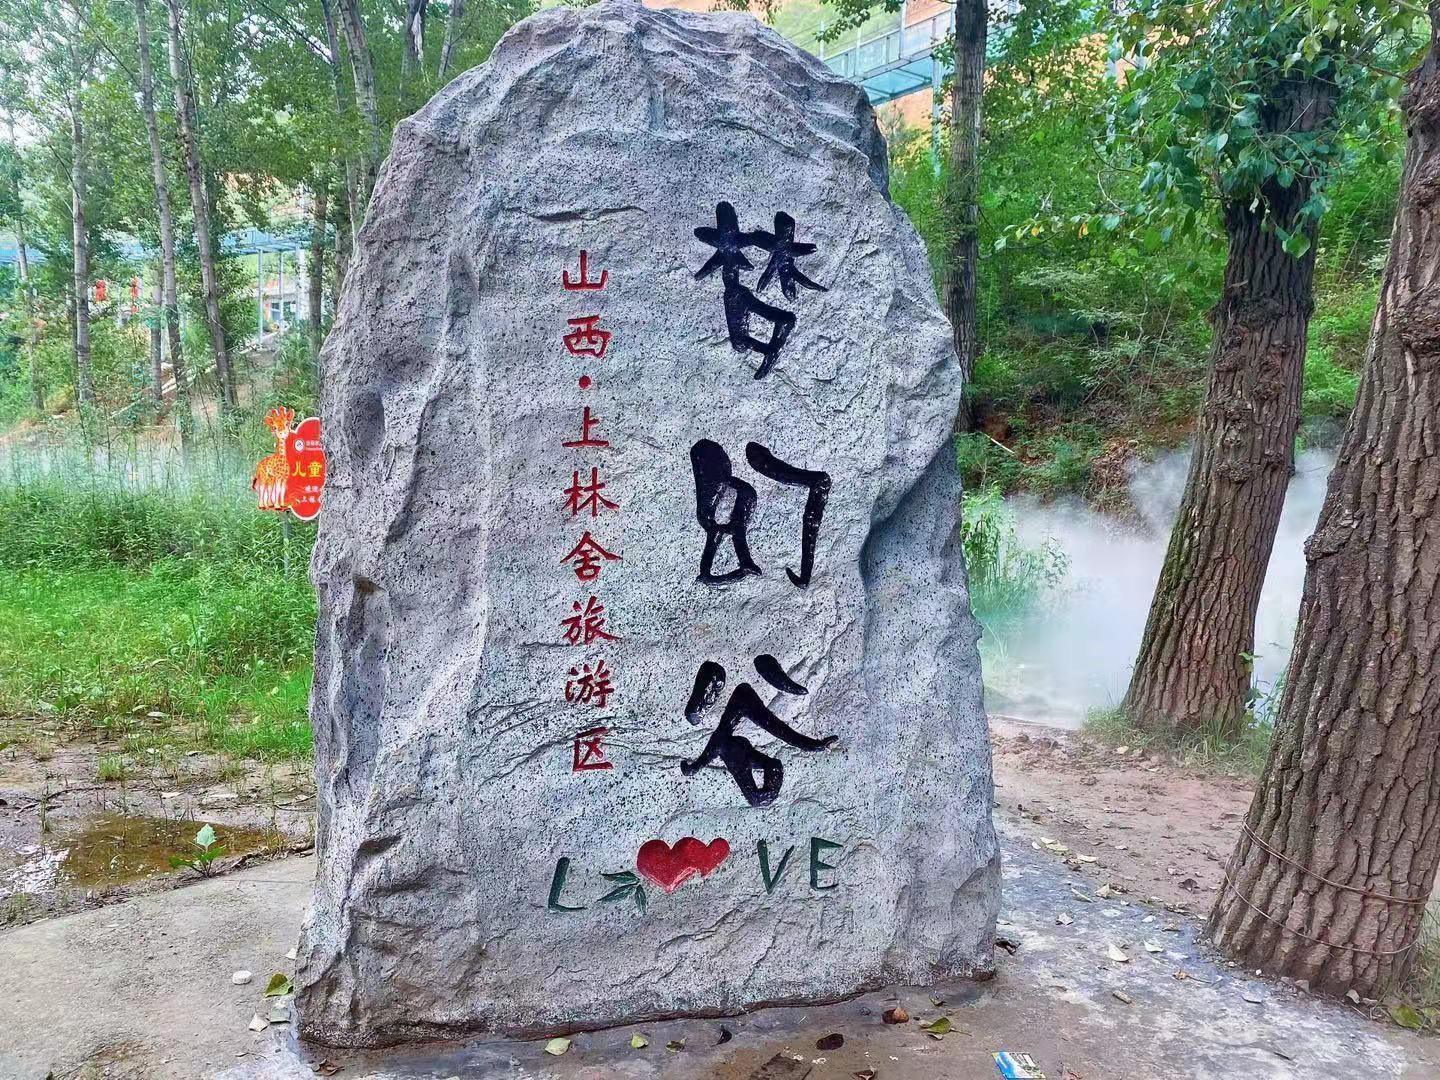 梦的谷
山西·上林舍旅游区
L VE
儿童